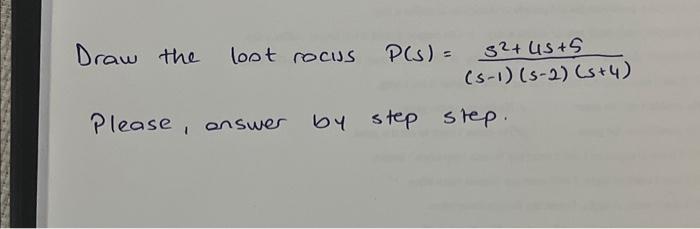 Draw the loot rocus P(s) = s²+4s+5 / (s-1)(s-2)(s+4)
Please, answer by step step.